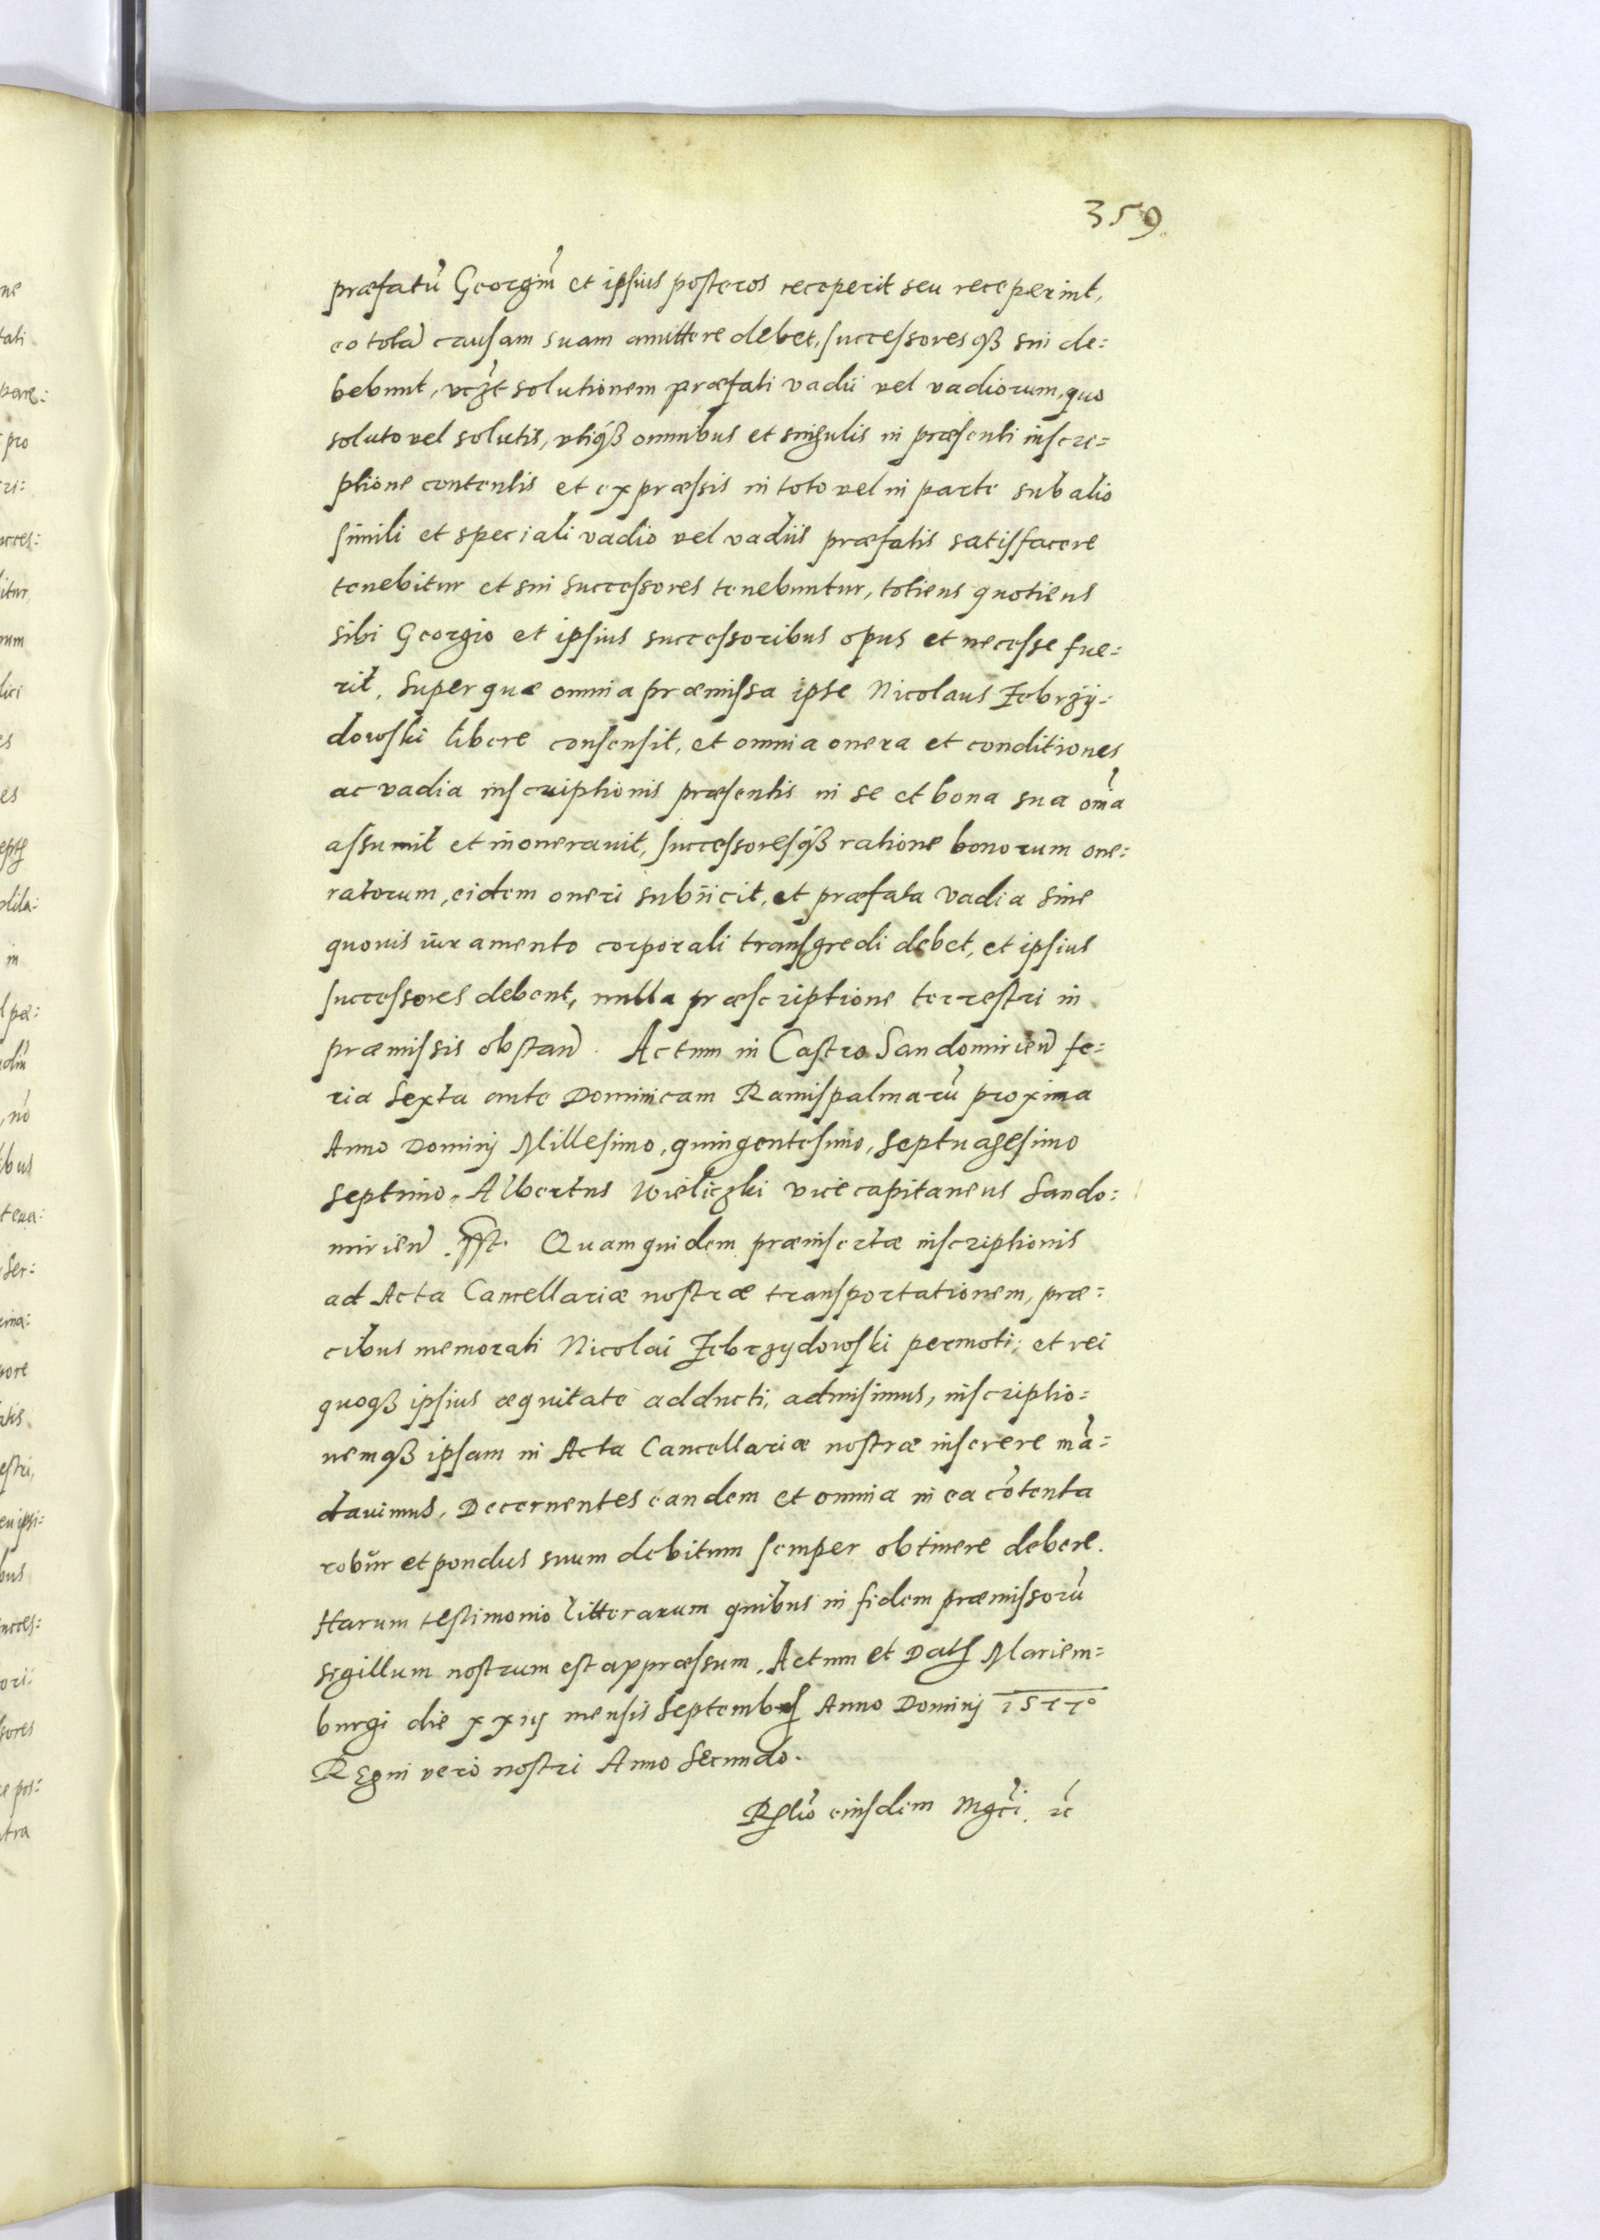 359.
præfatū Georgiū et ipsius posteros receperit seu receperint,
eo totā causam suam amittere debet, successoresq3 sui de:
bebunt, solutionem præfati vadii vel vadiorum, quo
soluto vel solutis, utiq3 omnibus et singulis in præsenti inscri=
ptione contentis et expræssis in toto vel in parte sub alio
simili et speciali vadio vel vadiis præfatis satisfacere
tenebitur et sui successores tenebuntur, totiens quotiens
sibi Georgio et ipsius successoribus opus et necesse fue:
rit, Super quæ omnia præmissa ipse Nicolaus Zebrzÿ:
dowski libere consensit, et omnia onera et conditiones
ac vadia inscriptionis præsentis in se et bona sua om̄a
assumit et inoneravit, successoresq3 ratione bonorum one:
ratorum, eidem oneri subiicit, et præfata vadia sine
quovis iuramento corporali transgredi debet, et ipsius
successores debent, nulla præscriptione terrestri in
præmissis obstan̄. Actum in Castro Sandomirien̄ fe:
ria sexta ante Dominicam Ramispalmarū proxima
Anno Dominj Millesimo, quingentesimo, septuagesimo
septimo. Albertus Wieliczki vicecapitaneus Sando:
mirien̄ Quamquidem præinsertæ inscriptionis
ad Acta Cancellariæ nostræ transportationem, præ:
cibus memorati Nicolai Zebrzydowski permoti, et rei
quoq3 ipsius æquitate adducti, admisimus, inscriptio=
nemq3 ipsam in Acta Cancellariæ nostræ inserere mā=
davimus, Decernentes eandem et omnia in ea cōtenta
robŭr et pondus suum debitum semper obtinere debere.
Harum testimonio litterarum quibus in fidem præmissorū
sigillum nostrum est appræssum. Actum et Datꝭ Mariem=
burgi die xxiij mensis Septembrꝭ Anno Dominj 1577o
Regni vero nostri Anno Secundo.
Rꝭlio eiusdem Mgc̄i. ꝛc̄